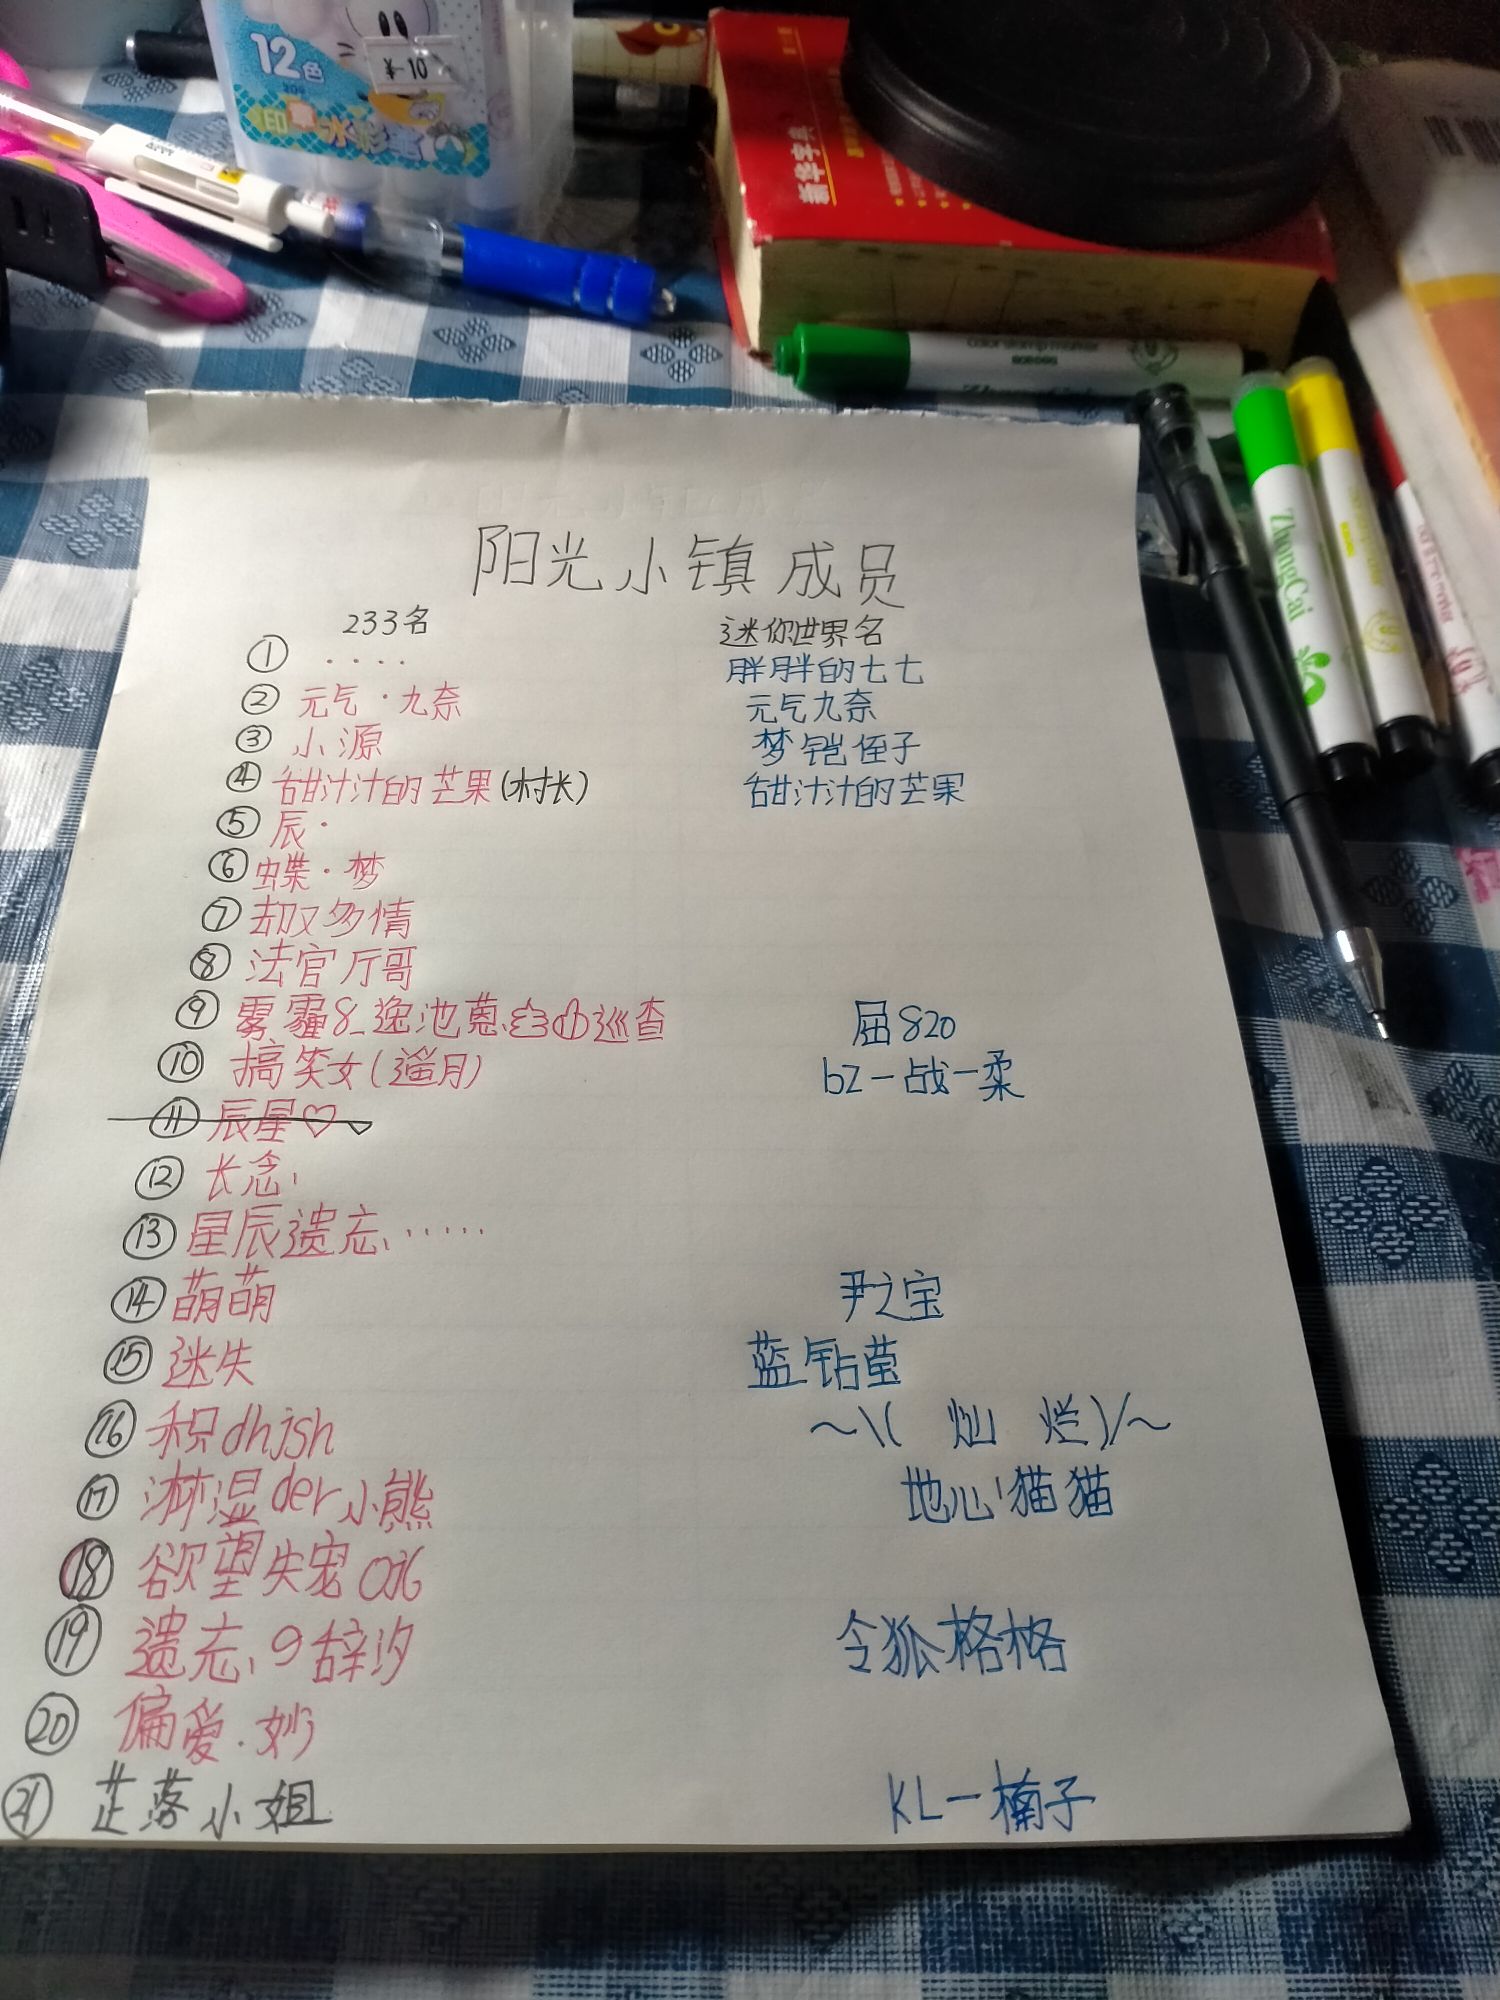 12色
¥-10
印章水彩笔
新华字典
color stamp marker
ZhongCai
阳光小镇成员
233名 迷你世界名
① ···· 胖胖的七七
② 元气·九奈 元气九奈
③ 小源 梦铠侄子
④ 甜汁汁的芒果(村长) 甜汁汁的芒果
⑤ 辰·
⑥ 蝶·梦
⑦ 却又多情
⑧ 法官厅哥
⑨ 雾霾8_逸池蒽 巡查 届820
⑩ 搞笑女(遥月) bZ一战一柔
⑪ 辰星♡
⑫ 长念
⑬ 星辰遗忘·····
⑭ 萌萌 尹之宝
⑮ 迷失 蓝钻莹
⑯ 积dhjsh ～\\( 灿 烂)/～
⑰ 淋湿der小熊 地心猫猫
⑱ 欲望失宠
⑲ 遗忘、9辞汐 令狐格格
⑳ 偏爱·妙
㉑ 芷落小姐 KL一楠子